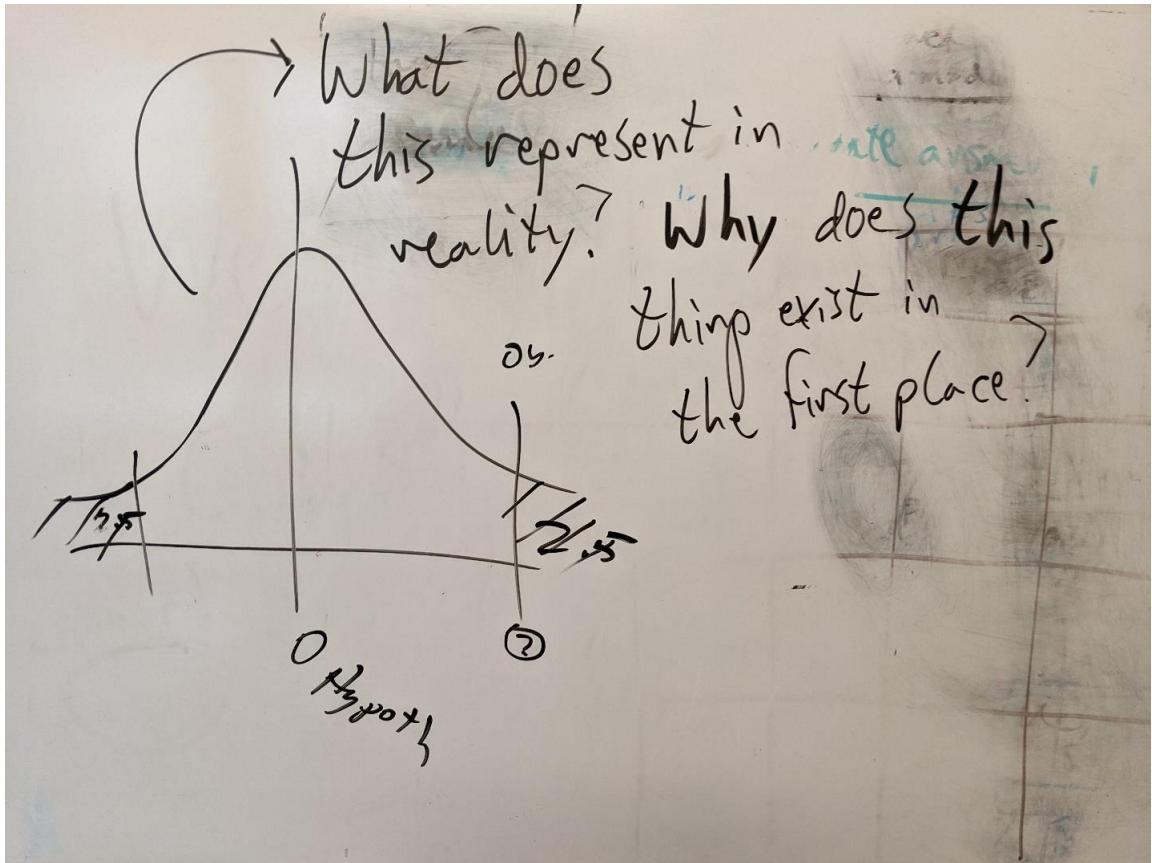 What does
this represent in
reality?
Why does this
thing exist in
the first place?
Ob.
2.5
2.5
0
Hypoth